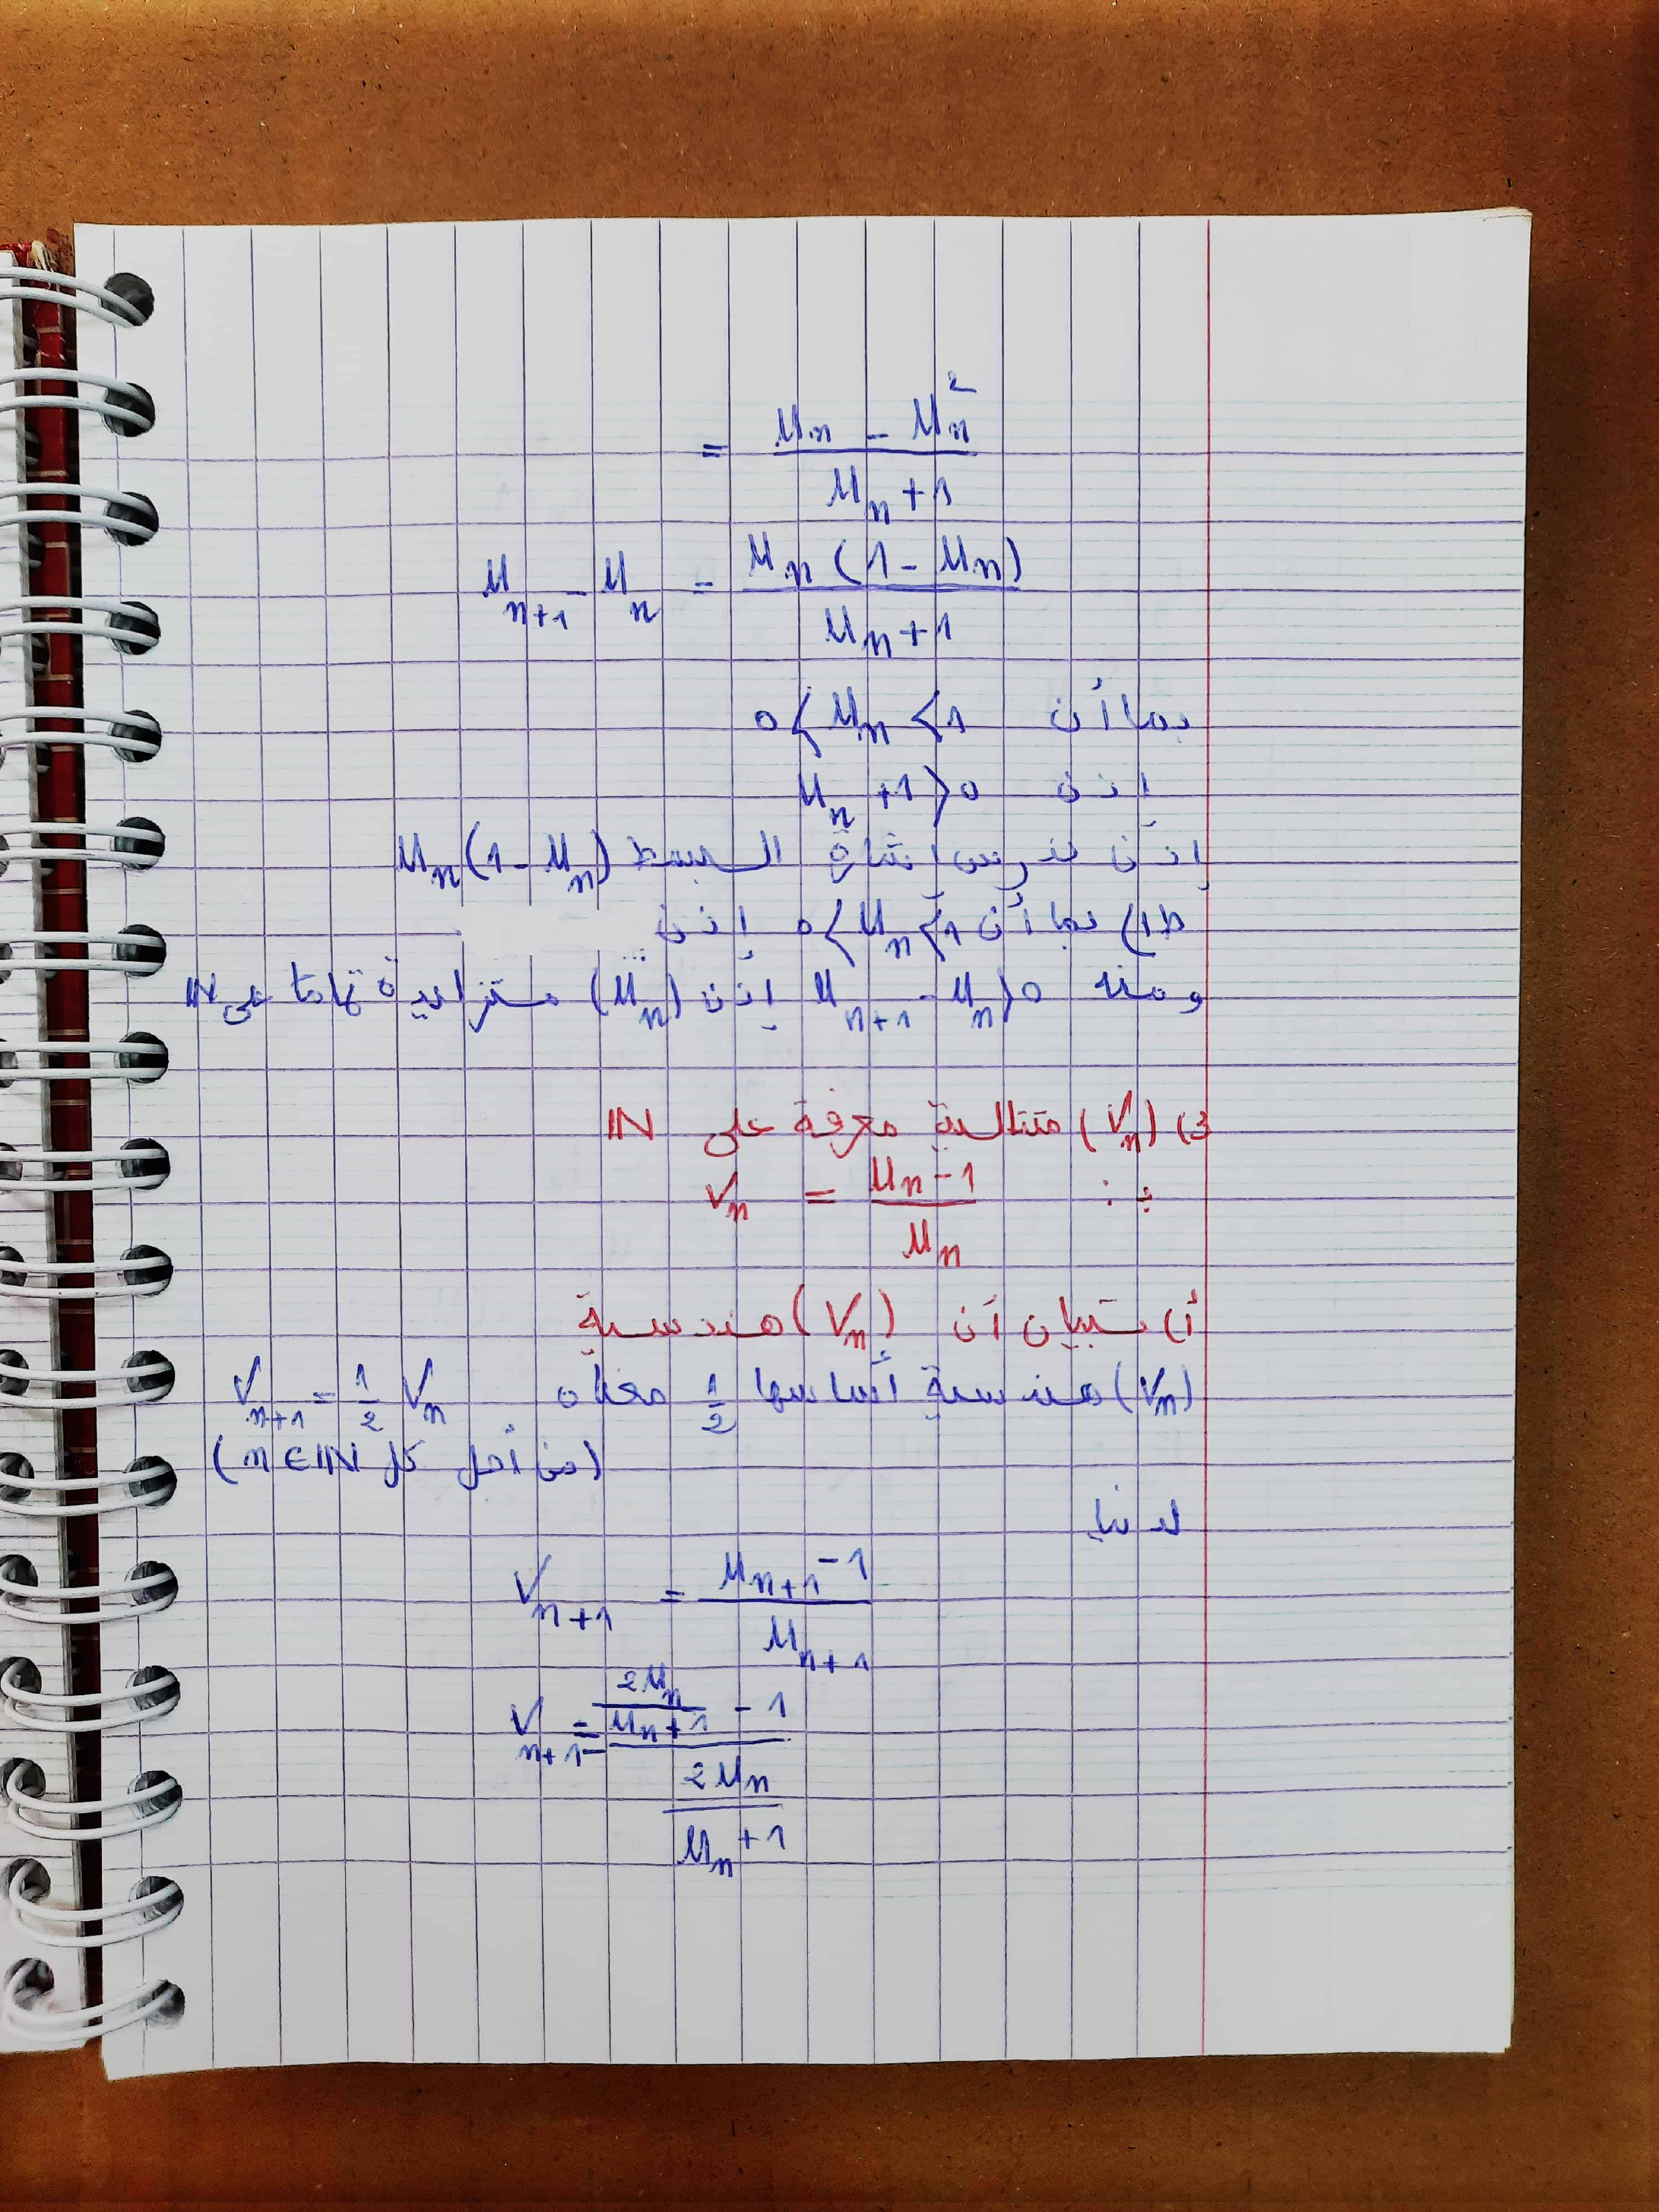 = (u_n - u_n^2) / (u_n + 1)
u_{n+1} - u_n = u_n (1 - u_n) / (u_n + 1)
بما أن 0 < u_n < 1
إذن u_n + 1 > 0
إذن ندرس إشارة البسط u_n (1 - u_n)
ط1) بما أن 0 < u_n < 1 إذن
ومنه u_{n+1} - u_n > 0 إذن (u_n) متزايدة تماما على IN
3) (V_n) متتالية معرفة على IN
بـ: V_n = (u_n - 1) / u_n
أ) تبيان أن (V_n) هندسية
(V_n) هندسية أساسها 1/2 معناه V_{n+1} = 1/2 V_n
(من أجل كل n ∈ IN)
لدينا
V_{n+1} = (u_{n+1} - 1) / u_{n+1}
V_{n+1} = (2u_n / (u_n + 1) - 1) / (2u_n / (u_n + 1))